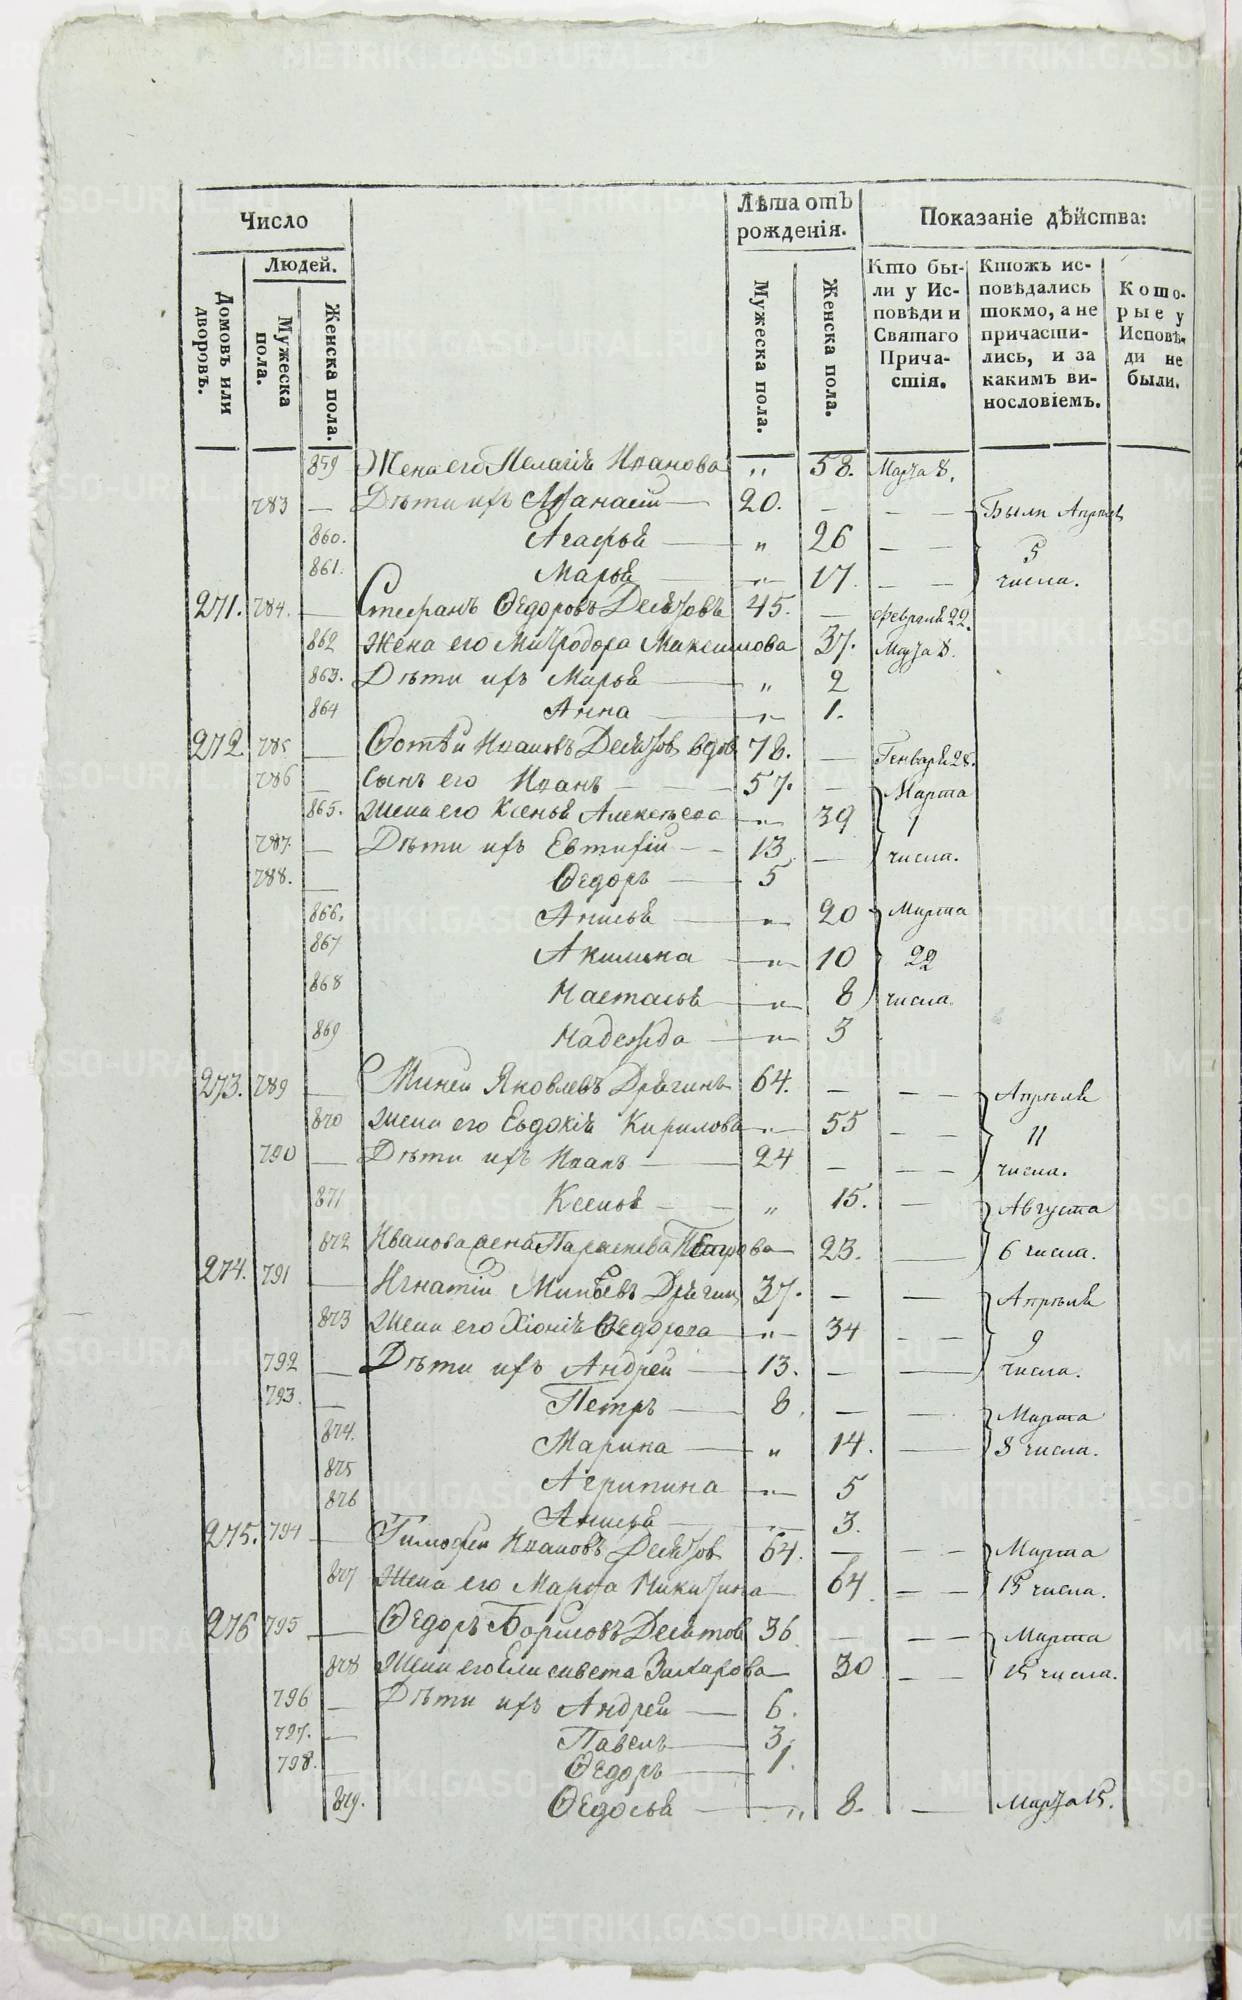 Число
Лѣта отъ рожденія.
Показаніе дѣйства:
Домовъ или дворовъ.
Людей.
Мужеска пола.
Женска пола.
Мужеска пола.
Женска пола.
Кто были у Исповѣди и Святаго Причастія.
Ктожъ исповѣдались токмо, а не причастились, и за какимъ винословіемъ.
Которые у Исповѣди не были.
859 Жена его Пелагіѧ Иванова „ 58. Марта 8.
783 — Дѣти ихъ Афанасій — 20. — — — Были Апрѣлѧ
860. Агафьѧ — „ 26 — — 5
861. Марьѧ — „ 17. — — числа.
271. 784. — Стефанъ Ѳедоровъ Десѧтовъ 45. — Февралѧ 22.
862 Жена его Митродора Максимова 37. Марта 8.
863. Дѣти ихъ Марьѧ — „ 2
864 Анна — „ 1.
272 785 — Фотѣй Ивановъ Десѧтов вдов 78. — Генварѧ 28.
786 — Сынъ его Иванъ — 57. — Марта
865. Жена его Ксеньѧ Алексѣева — „ 39 1
787. — Дѣти ихъ Евтифій — 13 — числа.
788. — Ѳедоръ — 5
866. Анисьѧ — „ 20 Марта
867 Акилина — „ 10 22
868 Настасьѧ — „ 8 числа.
869 Надежда — „ 3
273. 789 — Миней Яковлевъ Дрѧгинъ 64. — — — Апрѣлѧ
870 Жена его Евдокіѧ Кирилова „ 55 — — 11
790 — Дѣти ихъ Иванъ — 24 — — — числа.
871 Ксеньѧ — „ 15. — Августа
872 Иванова жена Парасковьѧ Петрова — 23. — 6 числа.
274. 791 — Игнатій Минѣевъ Дрѧгин 37. — — Апрѣлѧ
873 Жена его Хіоніѧ Ѳедорова — „ 34 — — 9
792 — Дѣти ихъ Андрей — 13. — — числа.
793. — Петръ — 8. — — Марта
874. Марина — „ 14. — 8 числа.
875 Агрипина — „ 5
876 Анисьѧ — „ 3.
275. 794 — Тимофей Ивановъ Десѧтов 64. — — — Марта
877 Жена его Марфа Никитина — 64 — — 15 числа.
276 795 — Ѳедоръ Борисовъ Десѧтов 36 — — — Марта
878 Жена его Елисавета Захарова — 30 — — 15 числа.
796 — Дѣти ихъ Андрей — 6.
797. — Павелъ — 3.
798. — Ѳедоръ — 1.
879. Ѳедосьѧ — „ 8. — Марта 15.
METRIKI.GASO-URAL.RU